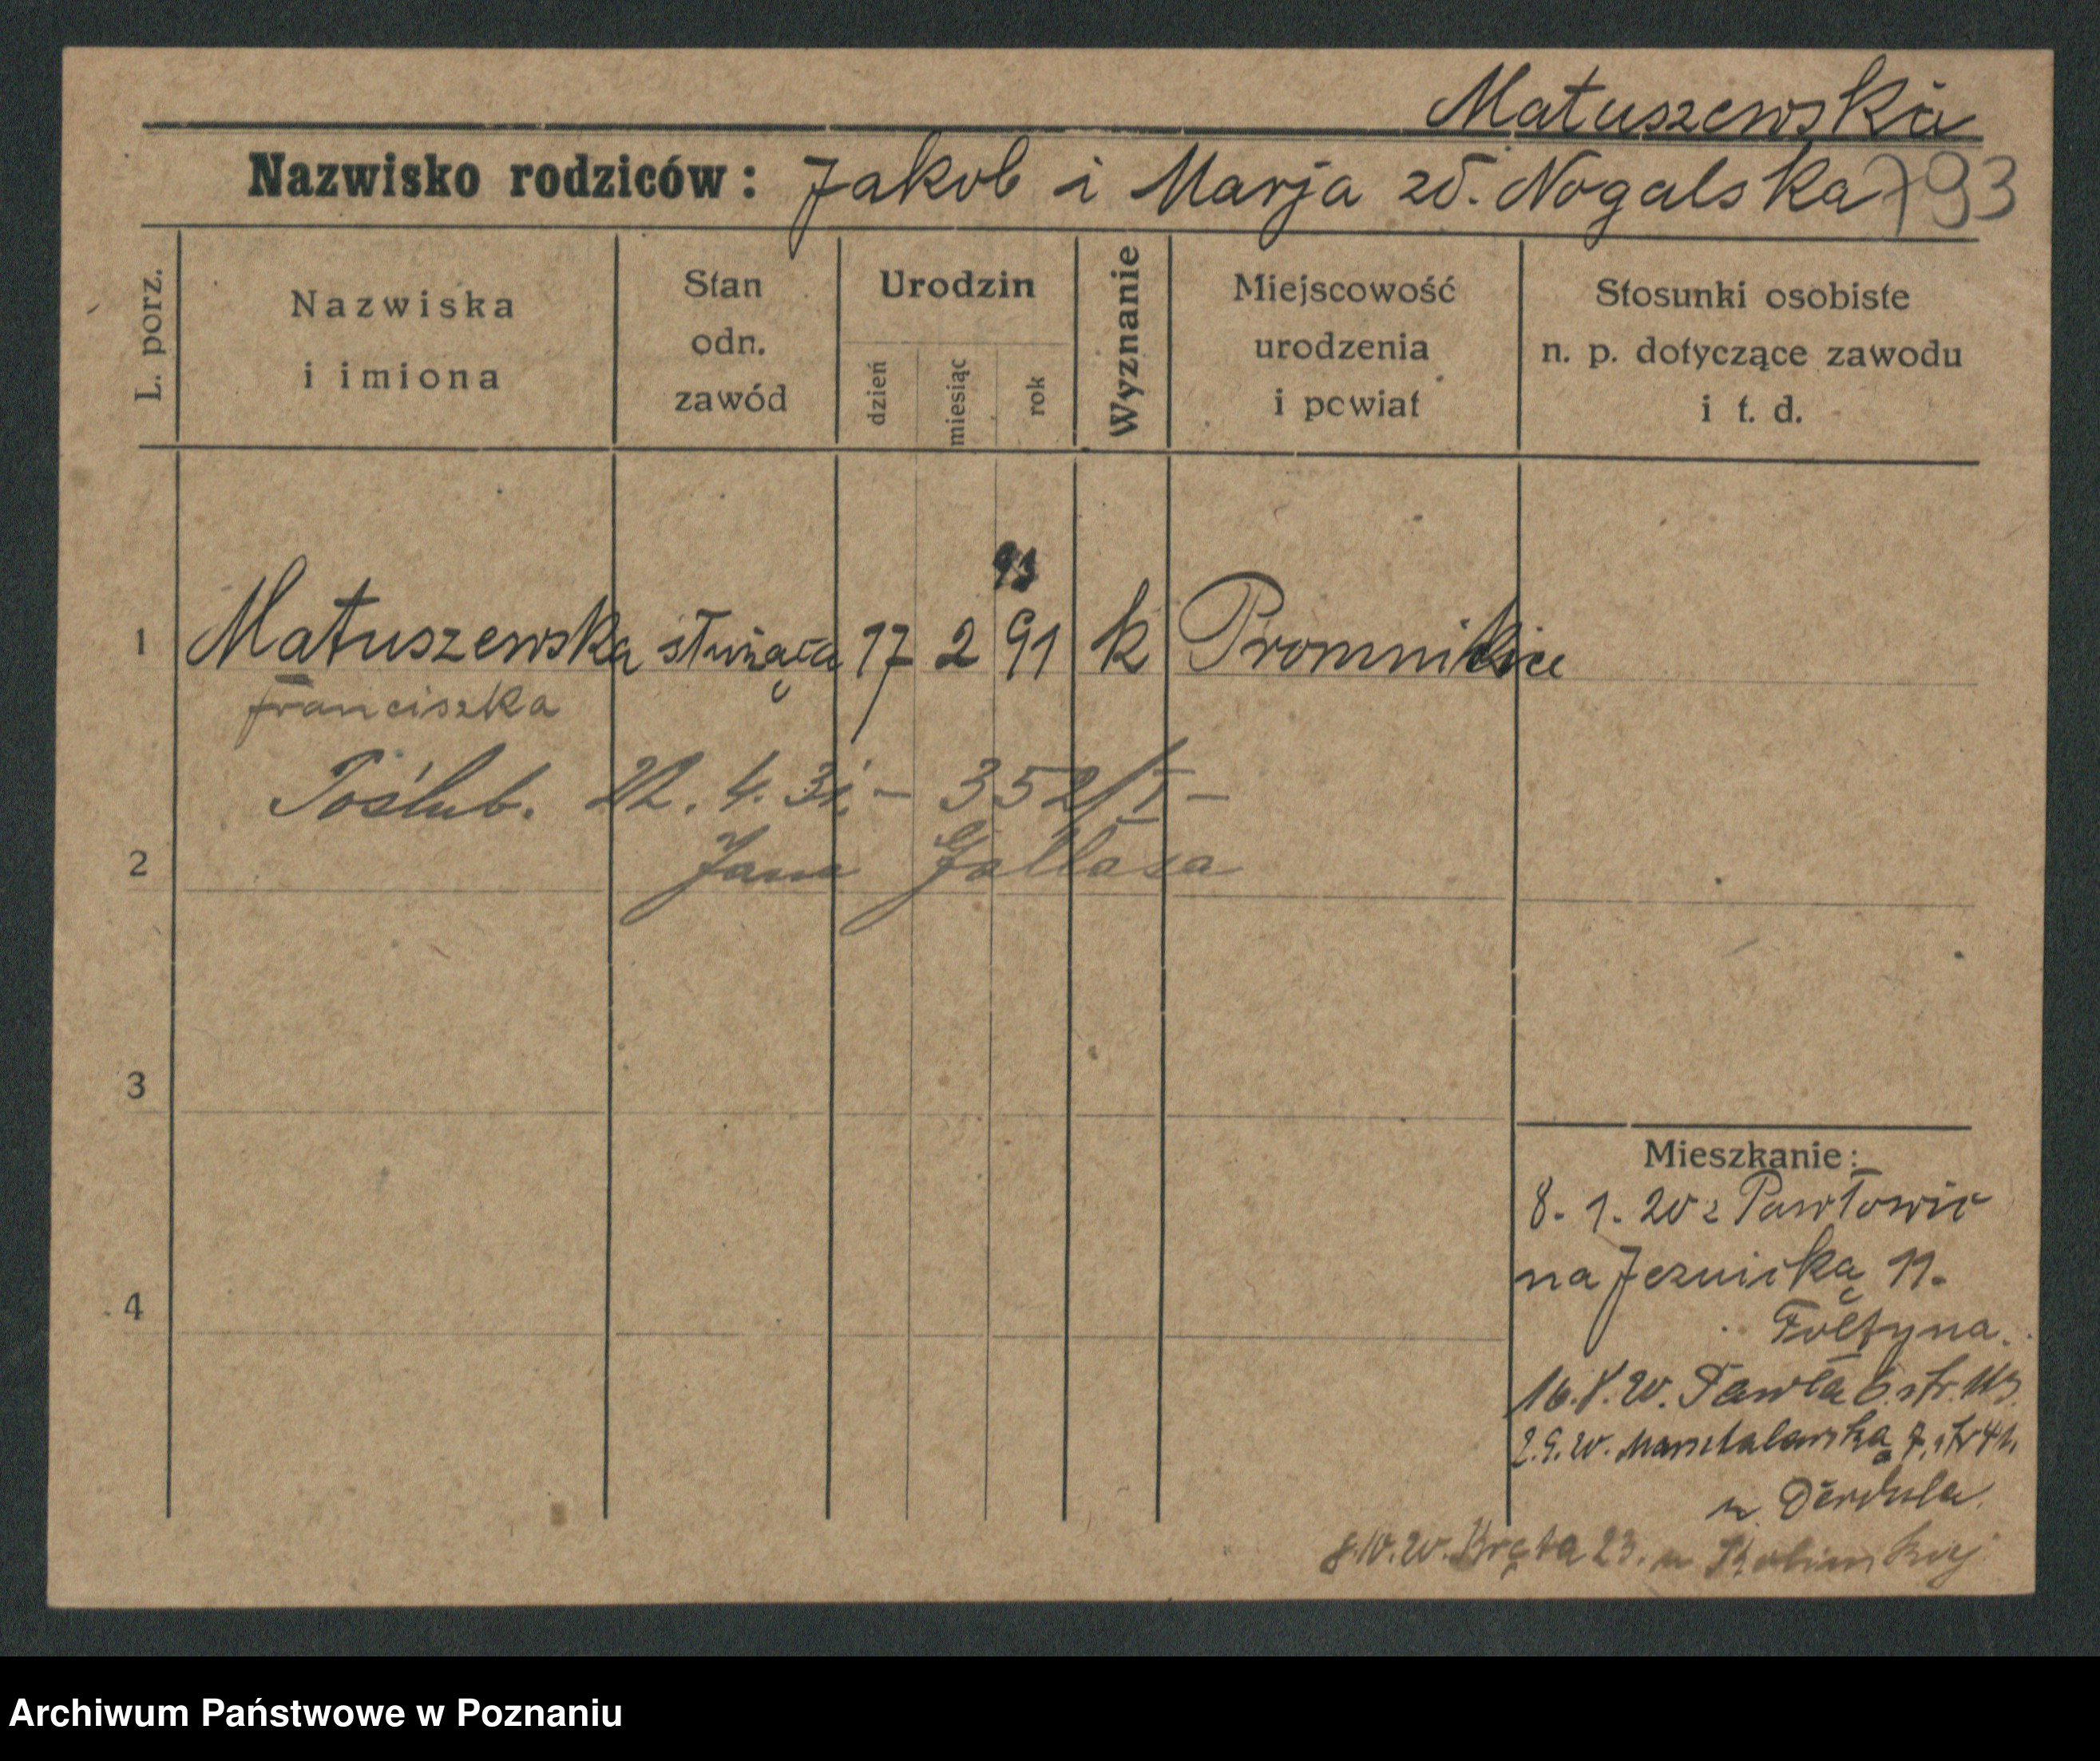 Matuszewska
Nazwisko rodziców: Jakob i Marja zd. Nogalska 793
L. porz.
Nazwiska
i imiona
Stan
odn.
zawód
Urodzin
dzień
miesiąc
rok
Wyznanie
Miejscowość
urodzenia
i powiat
Stosunki osobiste
n. p. dotyczące zawodu
i t. d.
93
1 Matuszewska służąca 17 2 91 k Promnikie
Franciszka
Poślub. 22. 4. 31. - 352/I -
2 Jana Gallasa
3
Mieszkanie:
8. 1. 20 z Pawłowic
na Jezuicką 11.
4
Fołtyna.
16.8.20. Pawła 6. str.
2.9.20. Masztalarska 7,
u
8.10.20. Kręta 23. u
Archiwum Państwowe w Poznaniu